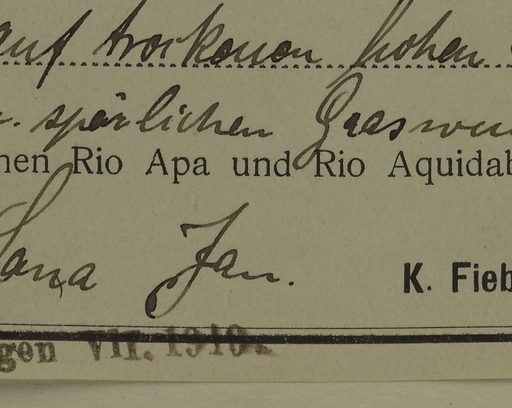 auf trockenen hohen
spärlichen Graswu
hen Rio Apa und Rio Aquidab
Jan.
K. Fieb
gen VII. 1910.